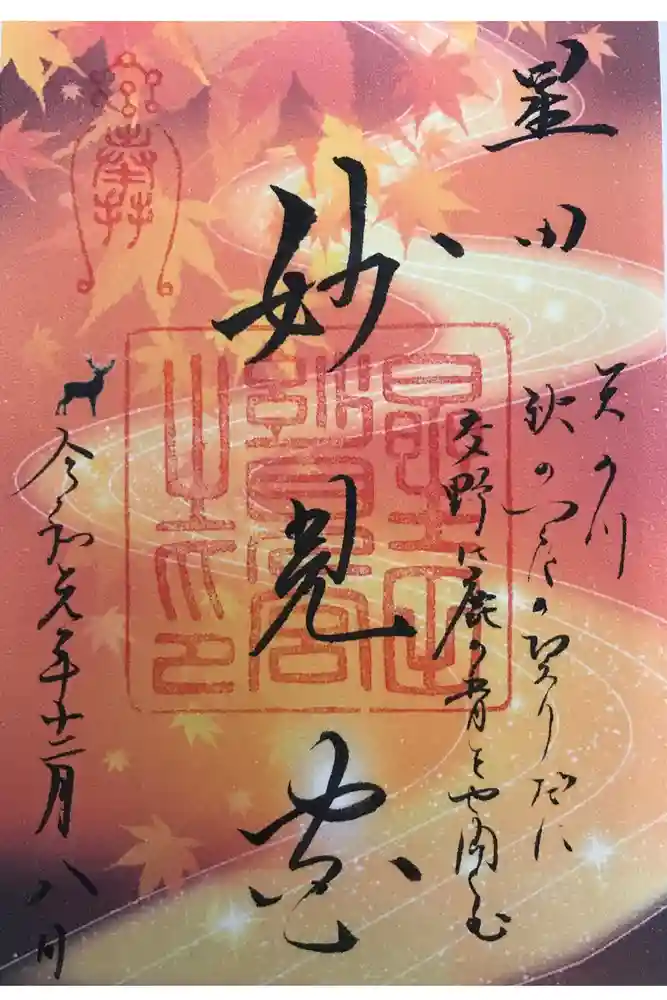 星田
妙見宮
天の川
秋の一夜の契りだに
交野に鹿の音をや
令和元年十二月八日
星田
妙見宮
之印